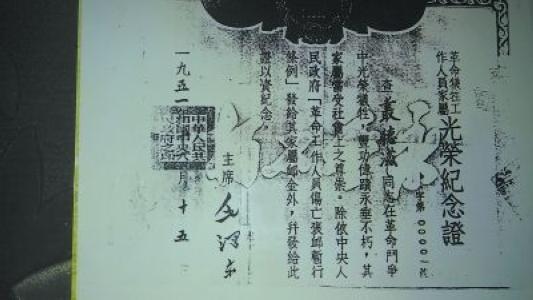 革命犧牲工
作人員家屬
光榮紀念證
字第00001號
查叢龍滋同志在革命鬥爭
中光榮犧牲,豐功偉蹟永垂不朽,其
家屬當受社會上之尊崇。除依中央人
民政府「革命工作人員傷亡褒邺暫行
條例」發給其家屬邺金外,幷發給此
證以資紀念。
主席
毛澤东
一九五一
月
十五
中華人民共
和國中央人
民政府之印